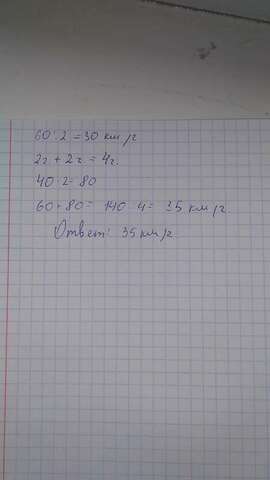 60:2=30 км/г
2г+2г.=4г.
40·2=80
60+80= 140 4= 35 км/г.
Ответ: 35 км/г